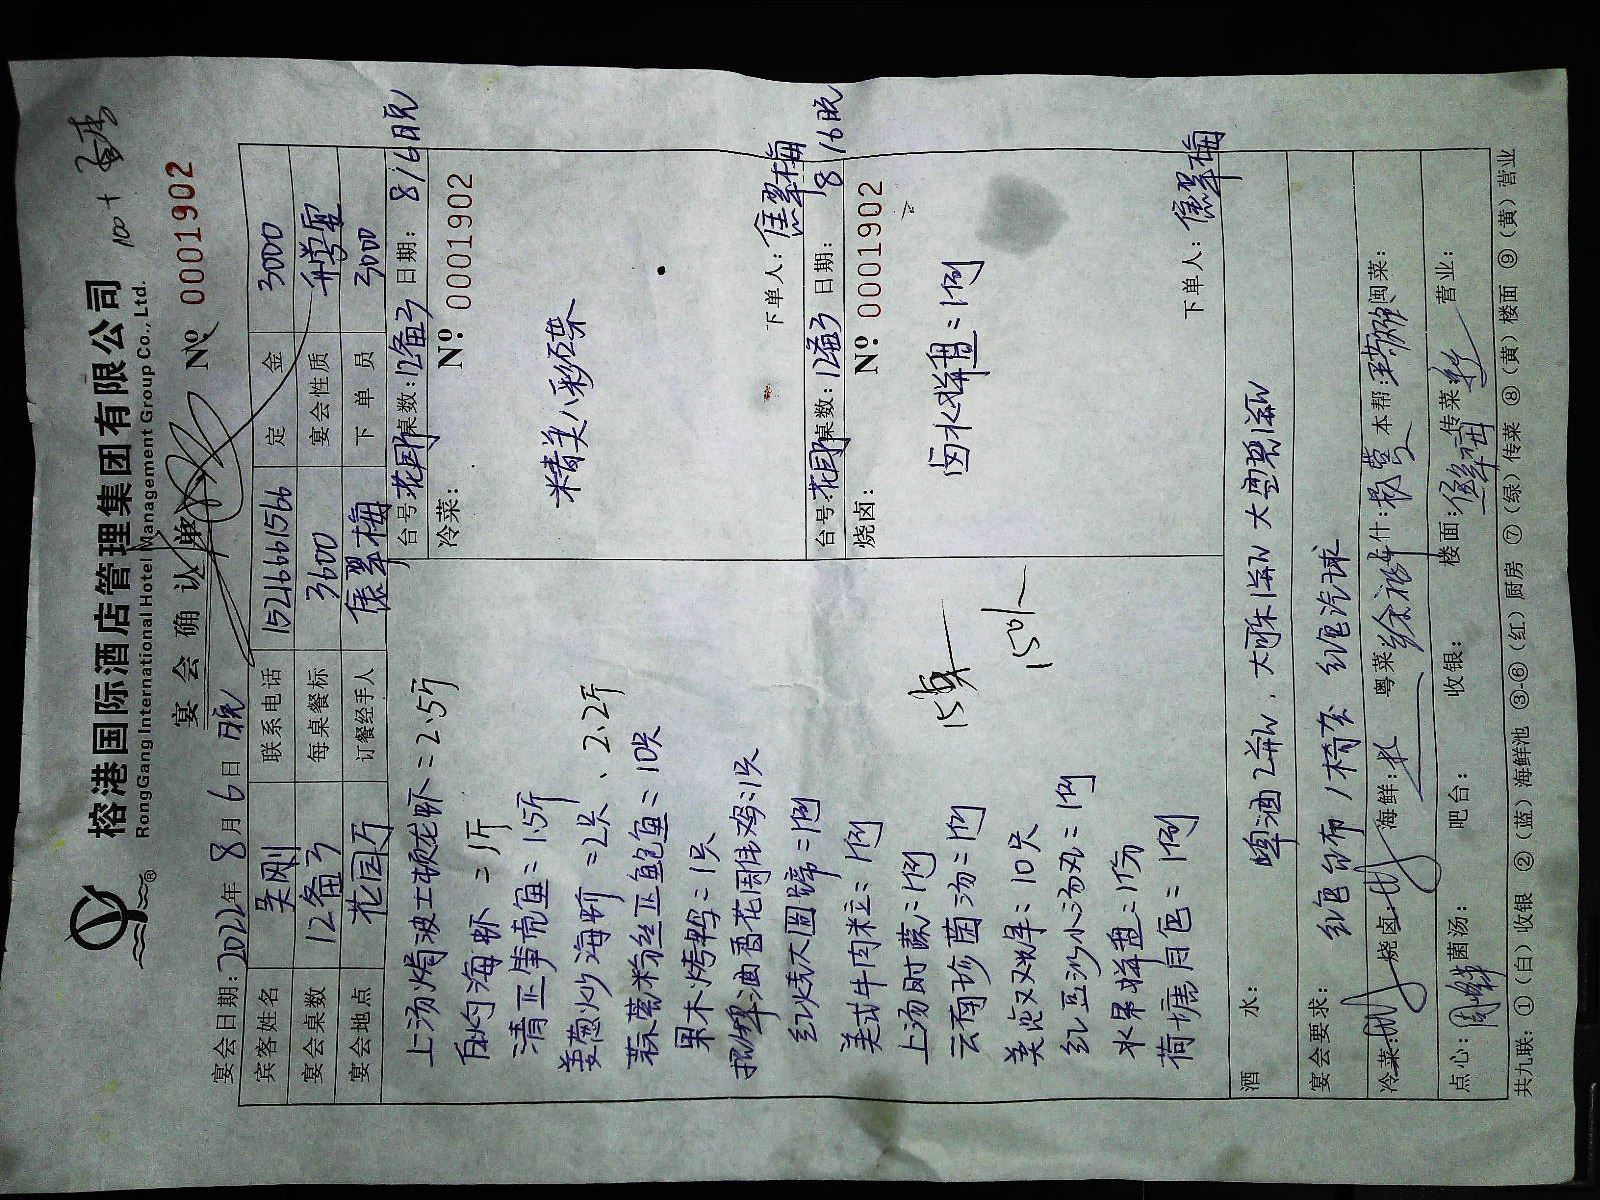 榕港国际酒店管理集团有限公司
RongGang International Hotel Management Group Co., Ltd.
100+
宴会确认单 Nº 0001902
宴会日期：2022年8月6日晚
宾客姓名 吴刚 联系电话 15216661566 定金 3000
宴会桌数 12备3 每桌餐标 3600 宴会性质 升学宴
宴会地点 花园厅 订餐经手人 焦翠梅 下单员 3000
上汤焗波士顿龙虾=2.5斤
白灼海虾=1斤
清蒸笋壳鱼=1.5斤
姜葱炒海蟹=2只、2.2斤
蒜蓉粉丝蒸鲍鱼=10只
果木烤鸭=1只
豉油香花雕鸡=1只
红烧大圆蹄=1例
美式牛肉粒=1例
上汤时蔬=1例
云南珍菌汤=1例
美极双味=10只
红豆沙小汤丸=1例
水果拼盘=1份
荷塘月色=1例
15桌
150卜
台号：花园厅 桌数：12备3 日期：8/6晚
冷菜： Nº 0001902
精美八彩碟
下单人：焦翠梅
台号：花园厅 桌数：12备3 日期：8/6晚
烧卤： Nº 0001902
卤水拼盘=1例
下单人：焦翠梅
酒水： 啤酒2瓶、大可乐1瓶 大雪碧1瓶
宴会要求： 红色台布/椅套 红色汽球
冷菜： 烧卤： 海鲜： 粤菜： 上什： 本帮： 闽菜：
点心： 菌汤： 吧台： 收银： 楼面：焦翠梅 传菜： 营业：
共九联：①（白）收银 ②（蓝）海鲜池 ③-⑥（红）厨房 ⑦（绿）传菜 ⑧（黄）楼面 ⑨（黄）营业